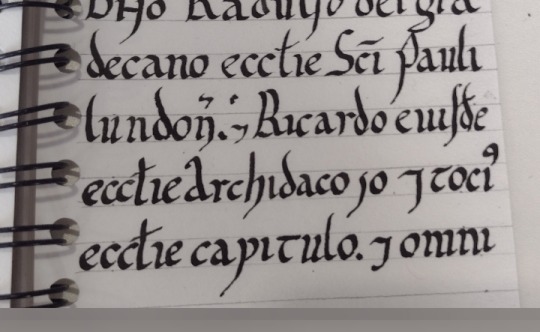 Dño Radulfo dei gr̃a
decano eccłie Sc̃i Pauli
lundoñ. ⁊ Ricardo eiusdẽ
eccłie Archidiacoɲo ⁊ tociꝰ
eccłie capitulo. ⁊ omni